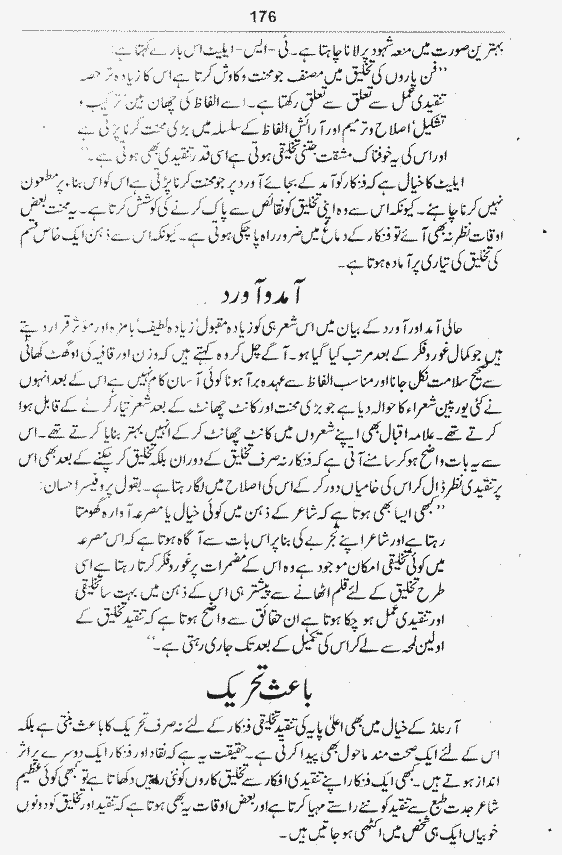 176
بہترین صورت میں منصہ شہود پر لانا چاہتا ہے۔ ٹی-ایس-ایلیٹ اس بارے کہتا ہے:
’’فن پاروں کی تخلیق میں مصنف جو محنت و کاوش کرتا ہے اس کا زیادہ تر حصہ
تنقیدی عمل سے تعلق سے تعلق رکھتا ہے۔ اسے الفاظ کی چھان بین، ترکیب،
تشکیل، اصلاح و ترمیم اور آرائش الفاظ کے سلسلہ میں بڑی محنت کرنا پڑتی ہے
اور اس کی یہ خوفناک مشقت جتنی تخلیقی ہوتی ہے اسی قدر تنقیدی بھی ہوتی ہے۔‘‘
ایلیٹ کا خیال ہے کہ فنکار کو آمد کے بجائے آورد پر جو محنت کرنا پڑتی ہے اس کو اس بناء پر مطعون
نہیں کرنا چاہئے۔ کیونکہ اس سے وہ اپنی تخلیق کو نقائص سے پاک کرنے کی کوشش کرتا ہے۔ یہ محنت بعض
اوقات نظر نہ بھی آئے تو فنکار کے دماغ میں ضرور راہ پا چکی ہوتی ہے۔ کیونکہ اس سے ذہن ایک خاص قسم
کی تخلیق کی تیاری پر آمادہ ہوتا ہے۔
آمد و آورد
حالی آمد اور آورد کے بیان میں اس شعر ہی کو زیادہ مقبول، زیادہ لطیف، بامزہ اور مؤثر قرار دیتے
ہیں جو کمال غور و فکر کے بعد مرتب کیا گیا ہو۔ آگے چل کر وہ کہتے ہیں کہ وزن اور قافیہ کی اوگھٹ گھاٹی
سے صحیح سلامت نکل جانا اور مناسب الفاظ سے عہدہ برآ ہونا کوئی آسان کام نہیں ہے اس کے بعد انہوں
نے کئی یورپین شعراء کا حوالہ دیا ہے جو بڑی محنت اور کانٹ چھانٹ کے بعد شعر تیار کرنے کے قابل ہوا
کرتے تھے۔ علامہ اقبال بھی اپنے شعروں میں کانٹ چھانٹ کر کے انہیں بہتر بنایا کرتے تھے۔ اس
سے یہ بات واضح ہو کر سامنے آتی ہے کہ فنکار نہ صرف تخلیق کے دوران بلکہ تخلیق کر چکنے کے بعد بھی اس
پر تنقیدی نظر ڈال کر اس کی خامیاں دور کر کے اس کی اصلاح میں لگا رہتا ہے۔ بقول پروفیسر احسان:
’’کبھی ایسا بھی ہوتا ہے کہ شاعر کے ذہن میں کوئی خیال یا مصرعہ آوارہ گھومتا
رہتا ہے اور شاعر اپنے تجربے کی بنا پر اس بات سے آگاہ ہوتا ہے کہ اس مصرعہ
میں کوئی تخلیقی امکان موجود ہے وہ اس کے مضمرات پر غور و فکر کرتا رہتا ہے اسی
طرح تخلیق کے لئے قلم اٹھانے سے پیشتر ہی اس کے ذہن میں بہت سا تخلیقی
اور تنقیدی عمل ہو چکا ہوتا ہے ان حقائق سے واضح ہوتا ہے کہ تنقید تخلیق کے
اولین لمحہ سے لے کر اس کی تکمیل کے بعد تک جاری رہتی ہے۔‘‘
باعث تحریک
آرنلڈ کے خیال میں بھی اعلیٰ پایہ کی تنقید تخلیقی فنکار کے لئے نہ صرف تحریک کا باعث بنتی ہے بلکہ
اس کے لئے ایک صحت مند ماحول بھی پیدا کرتی ہے۔ حقیقت یہ ہے کہ نقاد اور فنکار ایک دوسرے پر اثر
انداز ہوتے ہیں۔ کبھی ایک فنکار اپنے تنقیدی افکار سے تخلیق کاروں کو نئی راہیں دکھاتا ہے تو کبھی کوئی عظیم
شاعر جدت طبع سے تنقید کو نئے راستے مہیا کرتا ہے اور بعض اوقات یہ بھی ہوتا ہے کہ تنقید اور تخلیق کو دونوں
خوبیاں ایک ہی شخص میں اکٹھی ہو جاتیں ہیں۔